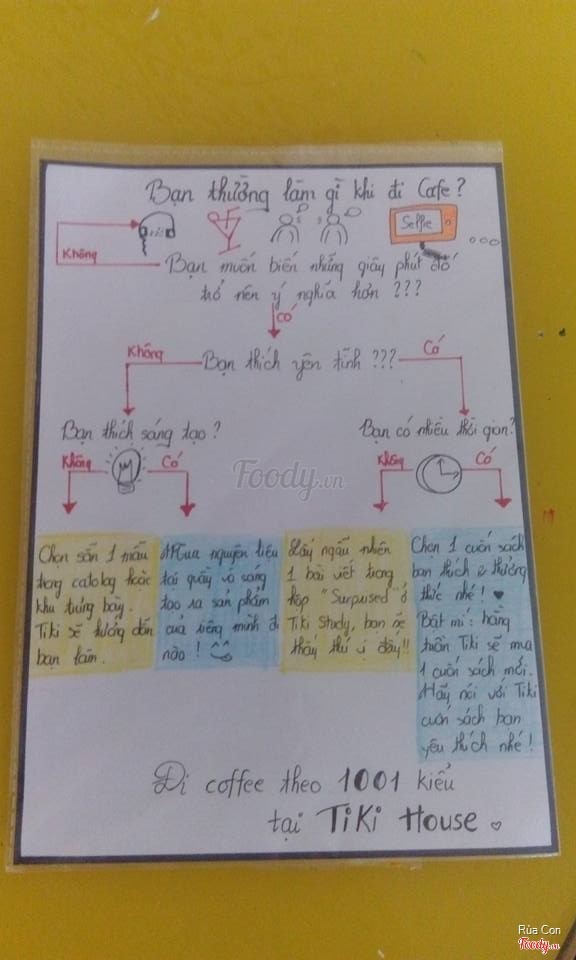 Bạn thường làm gì khi đi Cafe?
Selfie
Không
Bạn muốn biến những giây phút đó
trở nên ý nghĩa hơn ???
Có
Không
Bạn thích yên tĩnh ???
Có
Bạn thích sáng tạo?
Bạn có nhiều thời gian?
Không
Có
Không
Có
Foody.vn
Chọn sẵn 1 mẫu
trong catolog hoặc
khu trưng bày.
Tiki sẽ hướng dẫn
bạn làm.
Mua nguyên liệu
tại quầy và sáng
tạo ra sản phẩm
của riêng mình đi
nào!
Lấy ngẫu nhiên
1 bài viết trong
hộp "Surprised" ở
Tiki Study, bạn sẽ
thấy thú vị đấy!!
Chọn 1 cuốn sách
bạn thích & thưởng
thức nhé! ♥
Bật mí: hằng
tuần Tiki sẽ mua
1 cuốn sách mới.
Hãy nói với Tiki
cuốn sách bạn
yêu thích nhé!
Đi coffee theo 1001 kiểu
tại TiKi House ♡
Rùa Con
Foody.vn